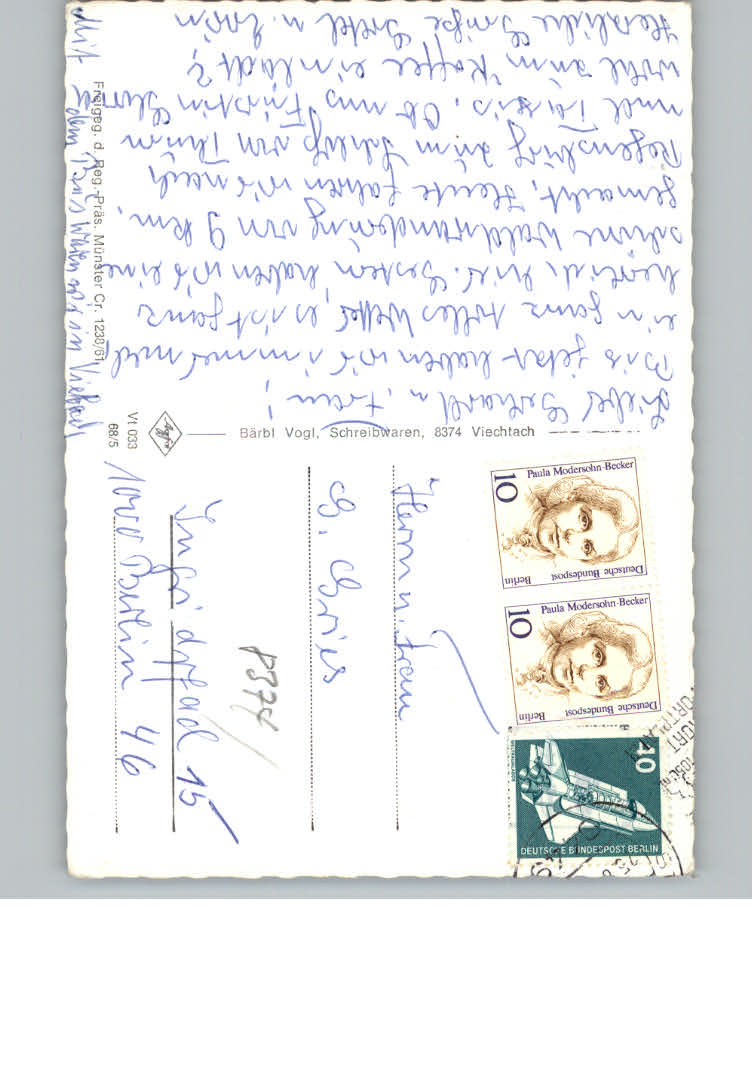 Lieber Gerhard u. Frau!
Bis jetzt haben wir immer mal
ein ganz tolles Wetter, es ist ganz
herrlich hier. Gestern haben wir eine
schöne Waldwanderung von 9 km.
gemacht. Heute fahren wir nach
Regensburg zum Schloß von Thurn
und Taxis. Ob uns Fürstin Gloria
wohl zum Kaffee einladt?
Herzliche Grüße
Mit dem Bus waren wir in
Freigeg. d. Reg.-Präs. Münster Cr. 1238/61
Vt 033
68/5
Agfa
Bärbl Vogl, Schreibwaren, 8374 Viechtach
Herrn u. Frau
G.
15
1000 Berlin 46
P374
10
Paula Modersohn-Becker
Deutsche Bundespost
Berlin
10
Paula Modersohn-Becker
Deutsche Bundespost
Berlin
40
WELTRAUMLABOR
DEUTSCHE BUNDESPOST BERLIN